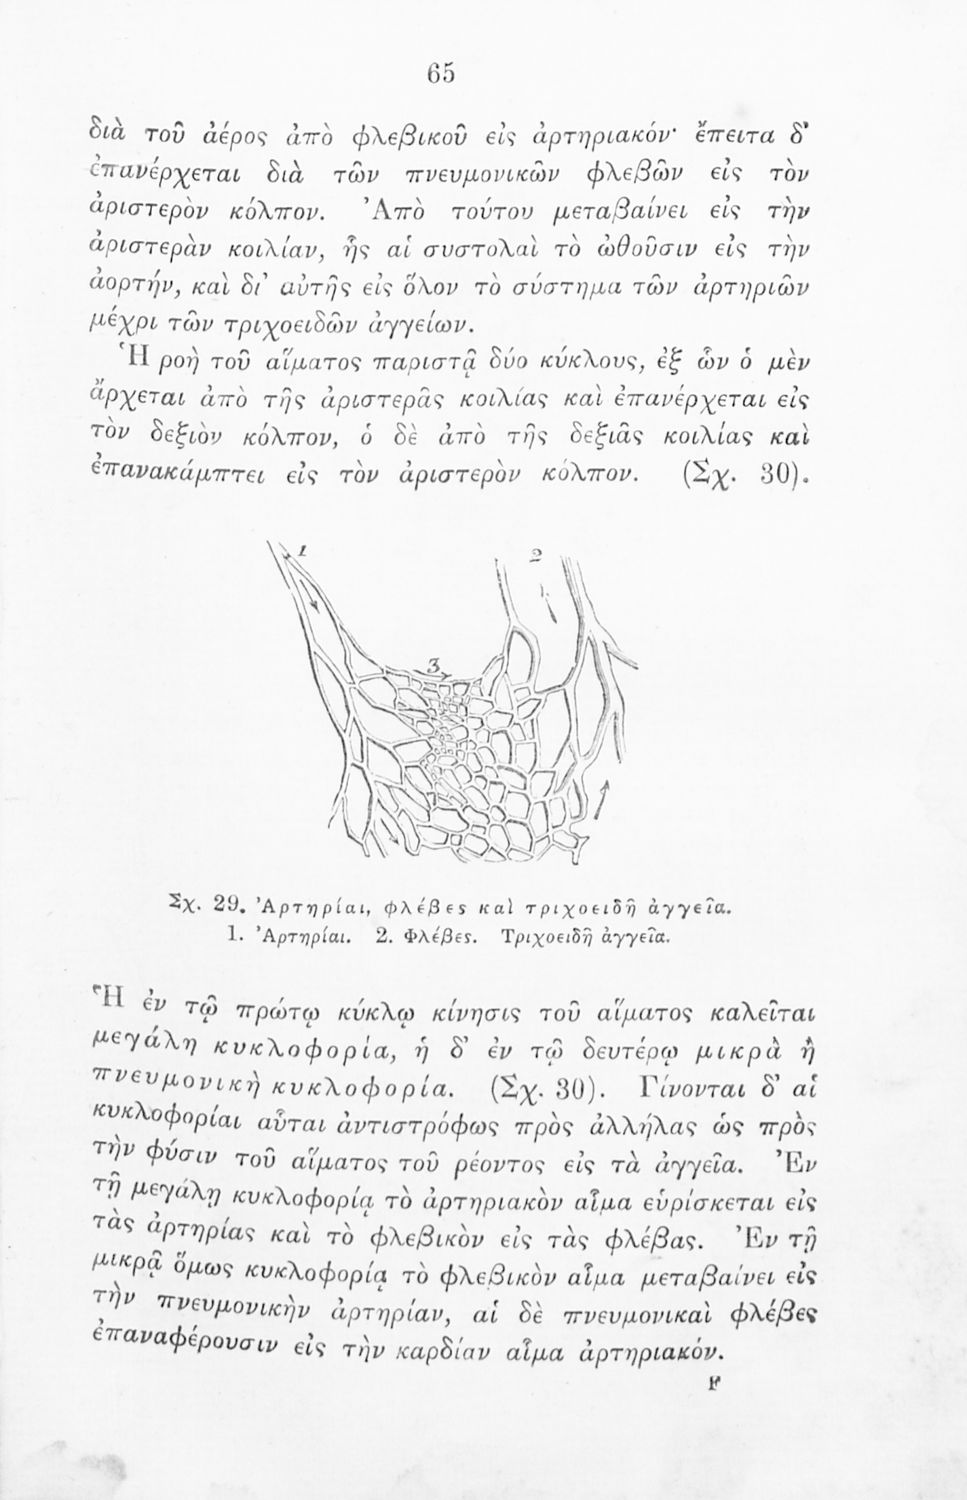 65
διὰ τοῦ ἀέρος ἀπὸ φλεβικοῦ εἰς ἀρτηριακόν· ἔπειτα δ'
ἐπανέρχεται διὰ τῶν πνευμονικῶν φλεβῶν εἰς τὸν
ἀριστερὸν κόλπον. Ἀπὸ τούτου μεταβαίνει εἰς τὴν
ἀριστερὰν κοιλίαν, ἧς αἱ συστολαὶ τὸ ὠθοῦσιν εἰς τὴν
ἀορτήν, καὶ δι' αὐτῆς εἰς ὅλον τὸ σύστημα τῶν ἀρτηριῶν
μέχρι τῶν τριχοειδῶν ἀγγείων.
Ἡ ροὴ τοῦ αἵματος παριστᾷ δύο κύκλους, ἐξ ὧν ὁ μὲν
ἄρχεται ἀπὸ τῆς ἀριστερᾶς κοιλίας καὶ ἐπανέρχεται εἰς
τὸν δεξιὸν κόλπον, ὁ δὲ ἀπὸ τῆς δεξιᾶς κοιλίας καὶ
ἐπανακάμπτει εἰς τὸν ἀριστερὸν κόλπον. (Σχ. 30).
1
2
3
Σχ. 29. Ἀρτηρίαι, φλέβες καὶ τριχοειδῆ ἀγγεῖα.
1. Ἀρτηρίαι. 2. Φλέβες. Τριχοειδῆ ἀγγεῖα.
Ἡ ἐν τῷ πρώτῳ κύκλῳ κίνησις τοῦ αἵματος καλεῖται
μεγάλη κυκλοφορία, ἡ δ' ἐν τῷ δευτέρῳ μικρὰ ἢ
πνευμονικὴ κυκλοφορία. (Σχ. 30). Γίνονται δ' αἱ
κυκλοφορίαι αὗται ἀντιστρόφως πρὸς ἀλλήλας ὡς πρὸς
τὴν φύσιν τοῦ αἵματος τοῦ ρέοντος εἰς τὰ ἀγγεῖα. Ἐν
τῇ μεγάλῃ κυκλοφορίᾳ τὸ ἀρτηριακὸν αἷμα εὑρίσκεται εἰς
τὰς ἀρτηρίας καὶ τὸ φλεβικὸν εἰς τὰς φλέβας. Ἐν τῇ
μικρᾷ ὅμως κυκλοφορίᾳ τὸ φλεβικὸν αἷμα μεταβαίνει εἰς
τὴν πνευμονικὴν ἀρτηρίαν, αἱ δὲ πνευμονικαὶ φλέβες
ἐπαναφέρουσιν εἰς τὴν καρδίαν αἷμα ἀρτηριακόν.
F